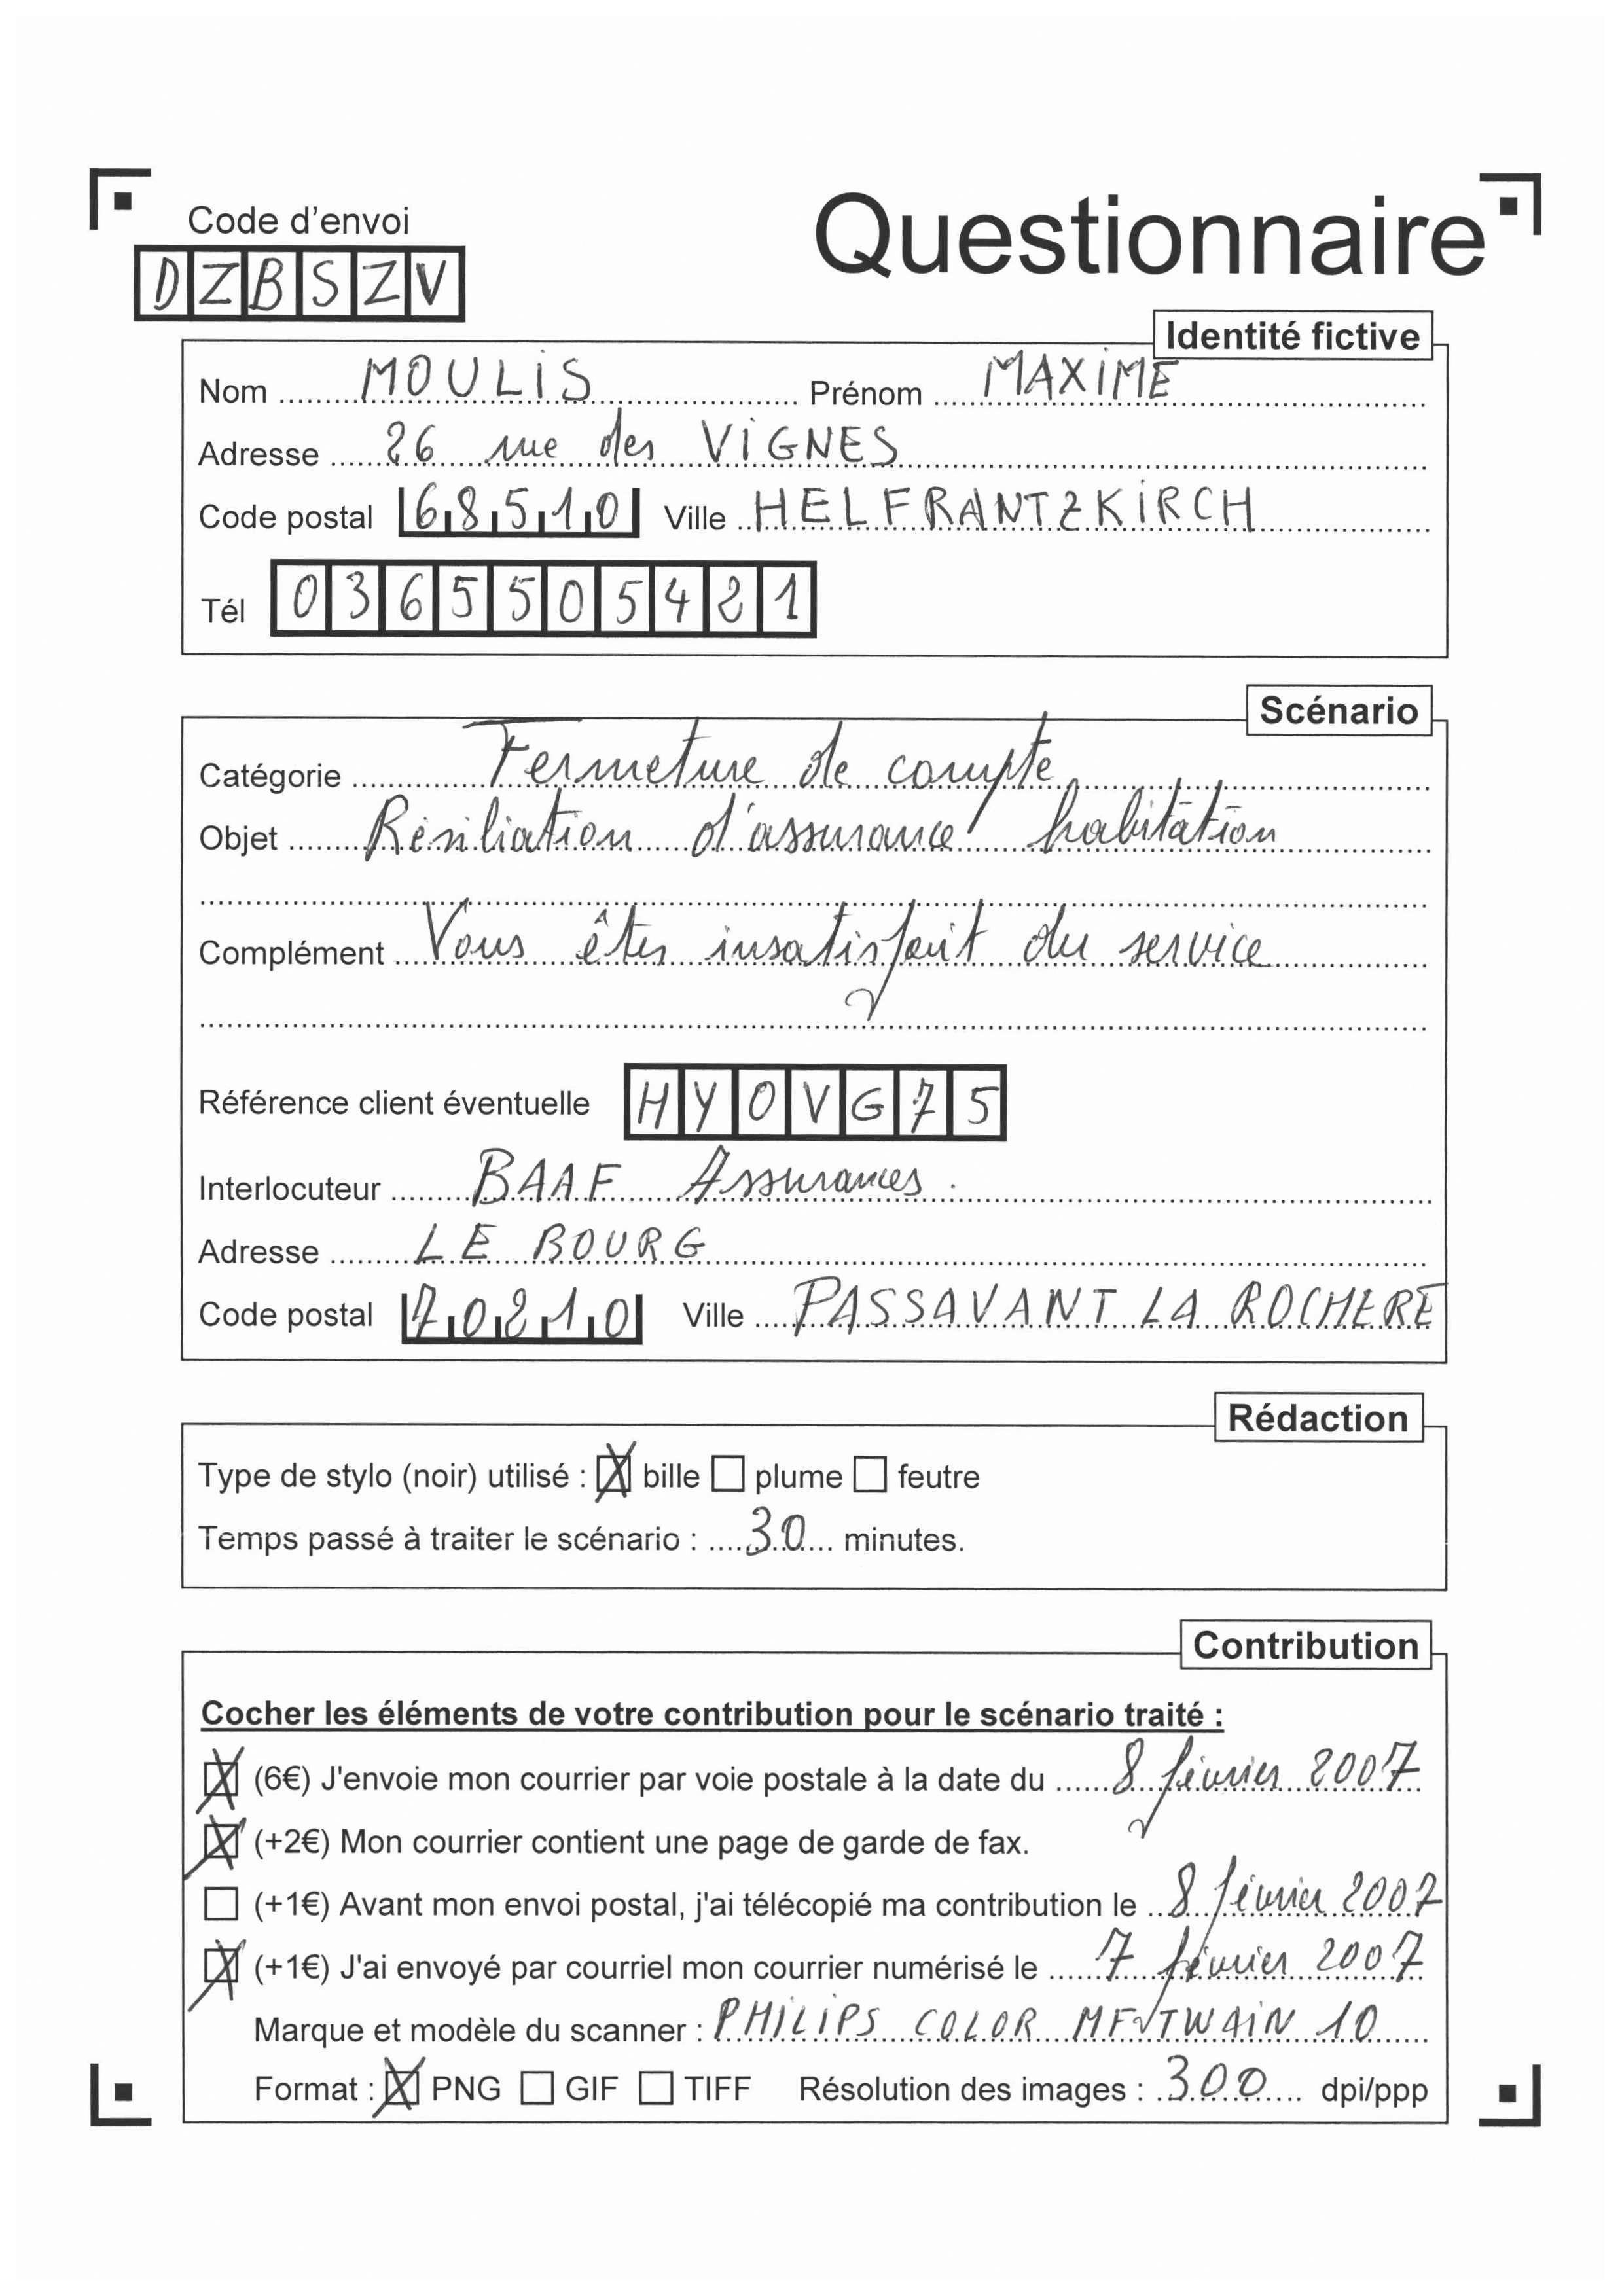 Code d'envoi
Questionnaire
DZBSZV
Identité fictive
Nom MOULIS Prénom MAXIME
Adresse 26 rue des VIGNES
Code postal 68510 Ville HELFRANTZKIRCH
Tél 0365505421
Scénario
Catégorie Fermeture de compte
Objet Résiliation d'assurance habitation
Complément Vous êtes insatisfait du service
Référence client éventuelle HYOVG75
Interlocuteur BAAF Assurances.
Adresse LE BOURG
Code postal 70210 Ville PASSAVANT LA ROCHERE
Rédaction
Type de stylo (noir) utilisé : bille plume feutre
Temps passé à traiter le scénario : 30 minutes.
Contribution
Cocher les éléments de votre contribution pour le scénario traité :
(6€) J'envoie mon courrier par voie postale à la date du 8 février 2007
(+2€) Mon courrier contient une page de garde de fax.
(+1€) Avant mon envoi postal, j'ai télécopié ma contribution le 8 février 2007
(+1€) J'ai envoyé par courriel mon courrier numérisé le 7 février 2007
Marque et modèle du scanner : PHILIPS COLOR MF TWAIN 10
Format : PNG GIF TIFF Résolution des images : 300 dpi/ppp